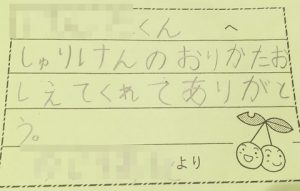 くん へ
しゅりけんのおりかたお
しえてくれてありがと
う。
より